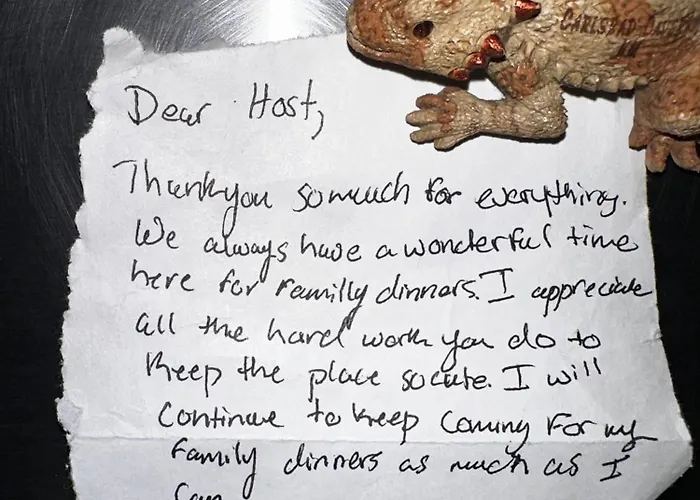 Dear Host,
Thankyou somuch for everything.
We always have a wonderful time
here for familly dinners. I appreciate
all the hard work you do to
keep the place socute. I will
continue to keep coming for my
family dinners as much as I
can
CARLSBAD